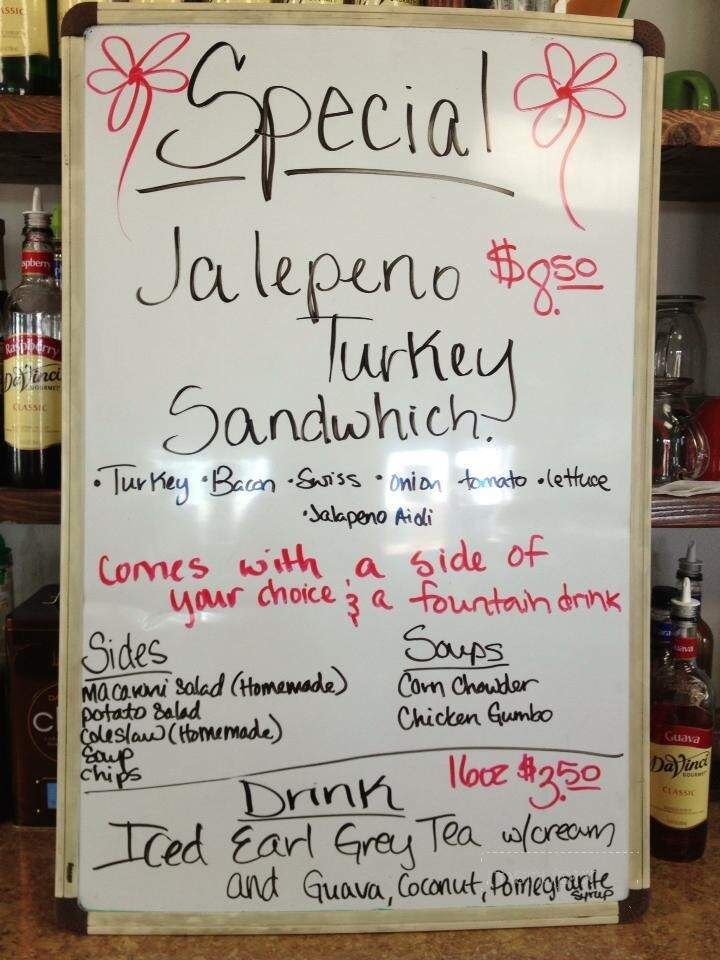 Special
Jalepeno $8.50
Turkey
Sandwhich.
• Turkey • Bacon • Swiss • onion tomato • lettuce
• Jalapeno Aioli
Comes with a side of
your choice & a fountain drink
Sides
Macaroni Salad (Homemade)
potato Salad
Coleslaw (Homemade)
Soup
Chips
Soups
Corn Chowder
Chicken Gumbo
16oz $3.50
Drink
Iced Earl Grey Tea w/cream
and Guava, Coconut, Pomegranite
syrup
Raspberry
DaVinci
GOURMET
CLASSIC
Guava
DaVinci
GOURMET
CLASSIC